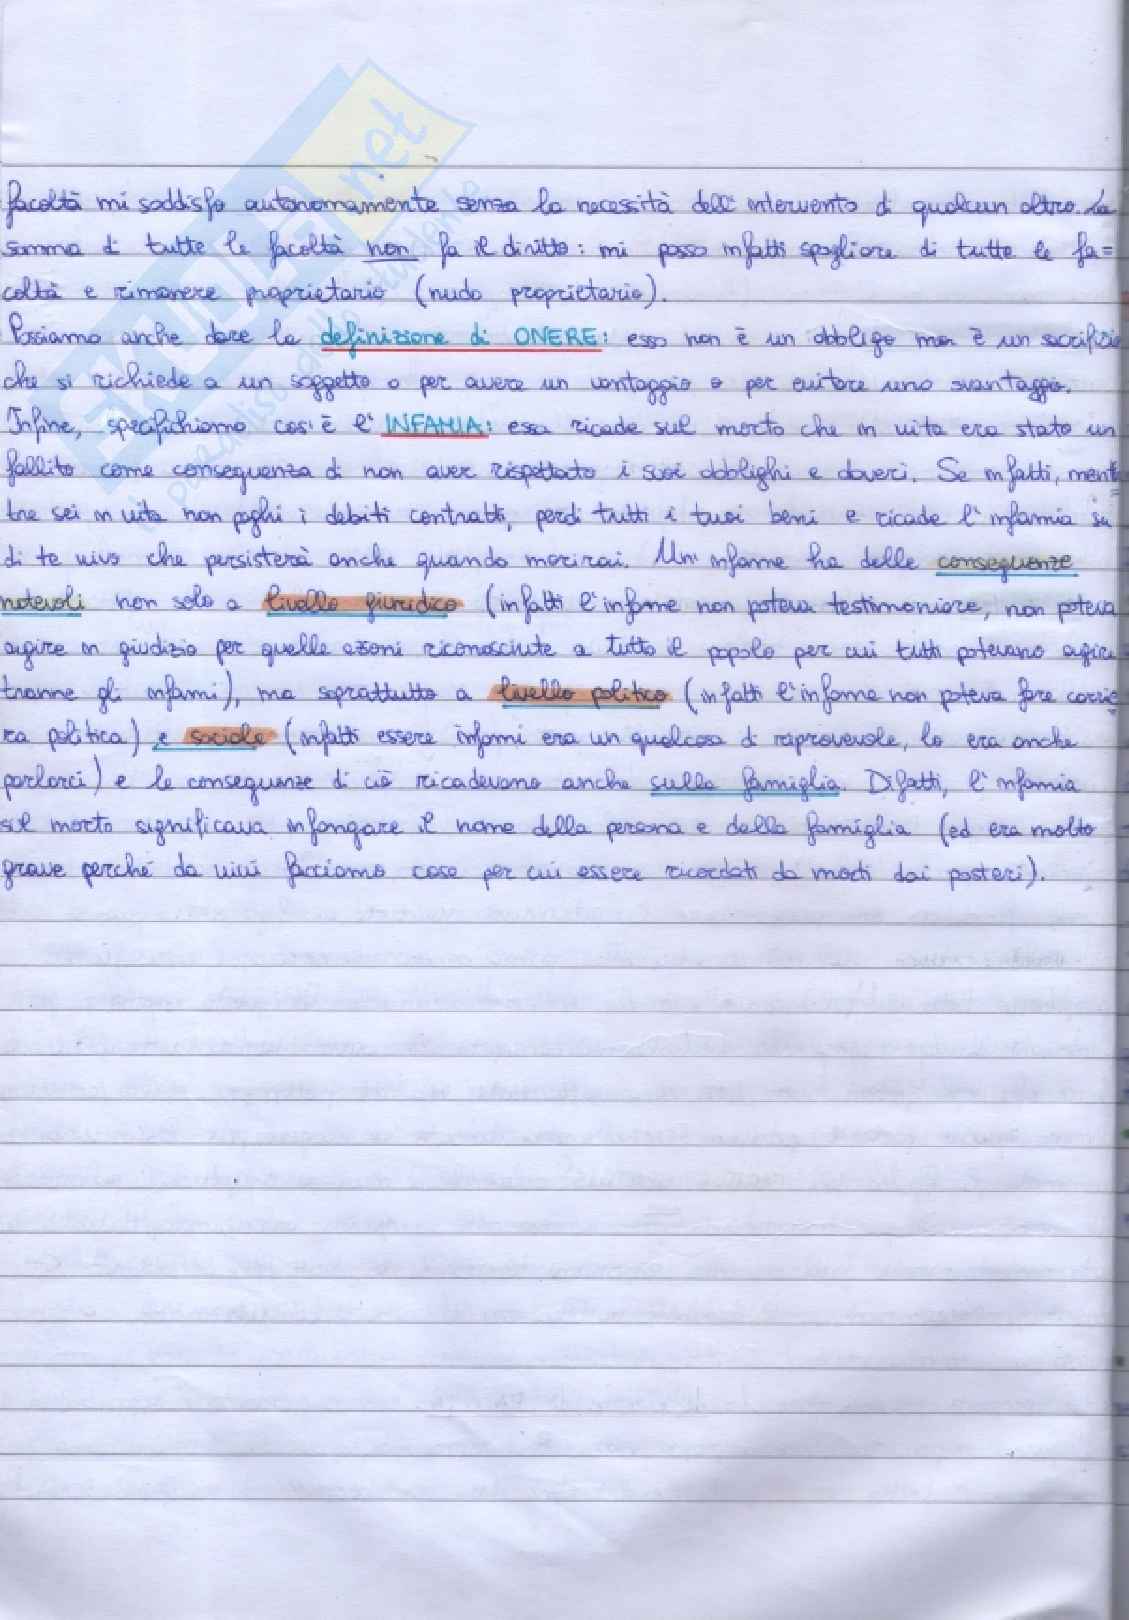 SKUOLA.net
il paradiso dello studente
facoltà mi soddisfo autonomamente senza la necessità dell'intervento di qualcun altro. La
somma di tutte le facoltà non fa il diritto: mi posso infatti spogliare di tutte le fa=
coltà e rimanere proprietario (nudo proprietario).
Possiamo anche dare la definizione di ONERE: esso non è un obbligo ma è un sacrificio
che si richiede a un soggetto o per avere un vantaggio o per evitare uno svantaggio.
Infine, specifichiamo cos'è l'INFAMIA: essa ricade sul morto che in vita era stato un
fallito come conseguenza di non aver rispettato i suoi obblighi e doveri. Se infatti, ment
tre sei in vita non paghi i debiti contratti, perdi tutti i tuoi beni e ricade l'infamia su
di te vivo che persisterà anche quando morirai. Un infame ha delle conseguenze
notevoli non solo a livello giuridico (infatti l'infame non poteva testimoniare, non poteva
agire in giudizio per quelle azioni riconosciute a tutto il popolo per cui tutti potevano agire
tranne gli infami), ma soprattutto a livello politico (infatti l'infame non poteva fare carrie
ra politica) e sociale (infatti essere infami era un qualcosa di riprovevole, lo era anche
parlarci) e le conseguenze di ciò ricadevano anche sulla famiglia. Difatti, l'infamia
sul morto significava infangare il nome della persona e della famiglia (ed era molto
grave perché da vivi facciamo cose per cui essere ricordati da morti dai posteri).